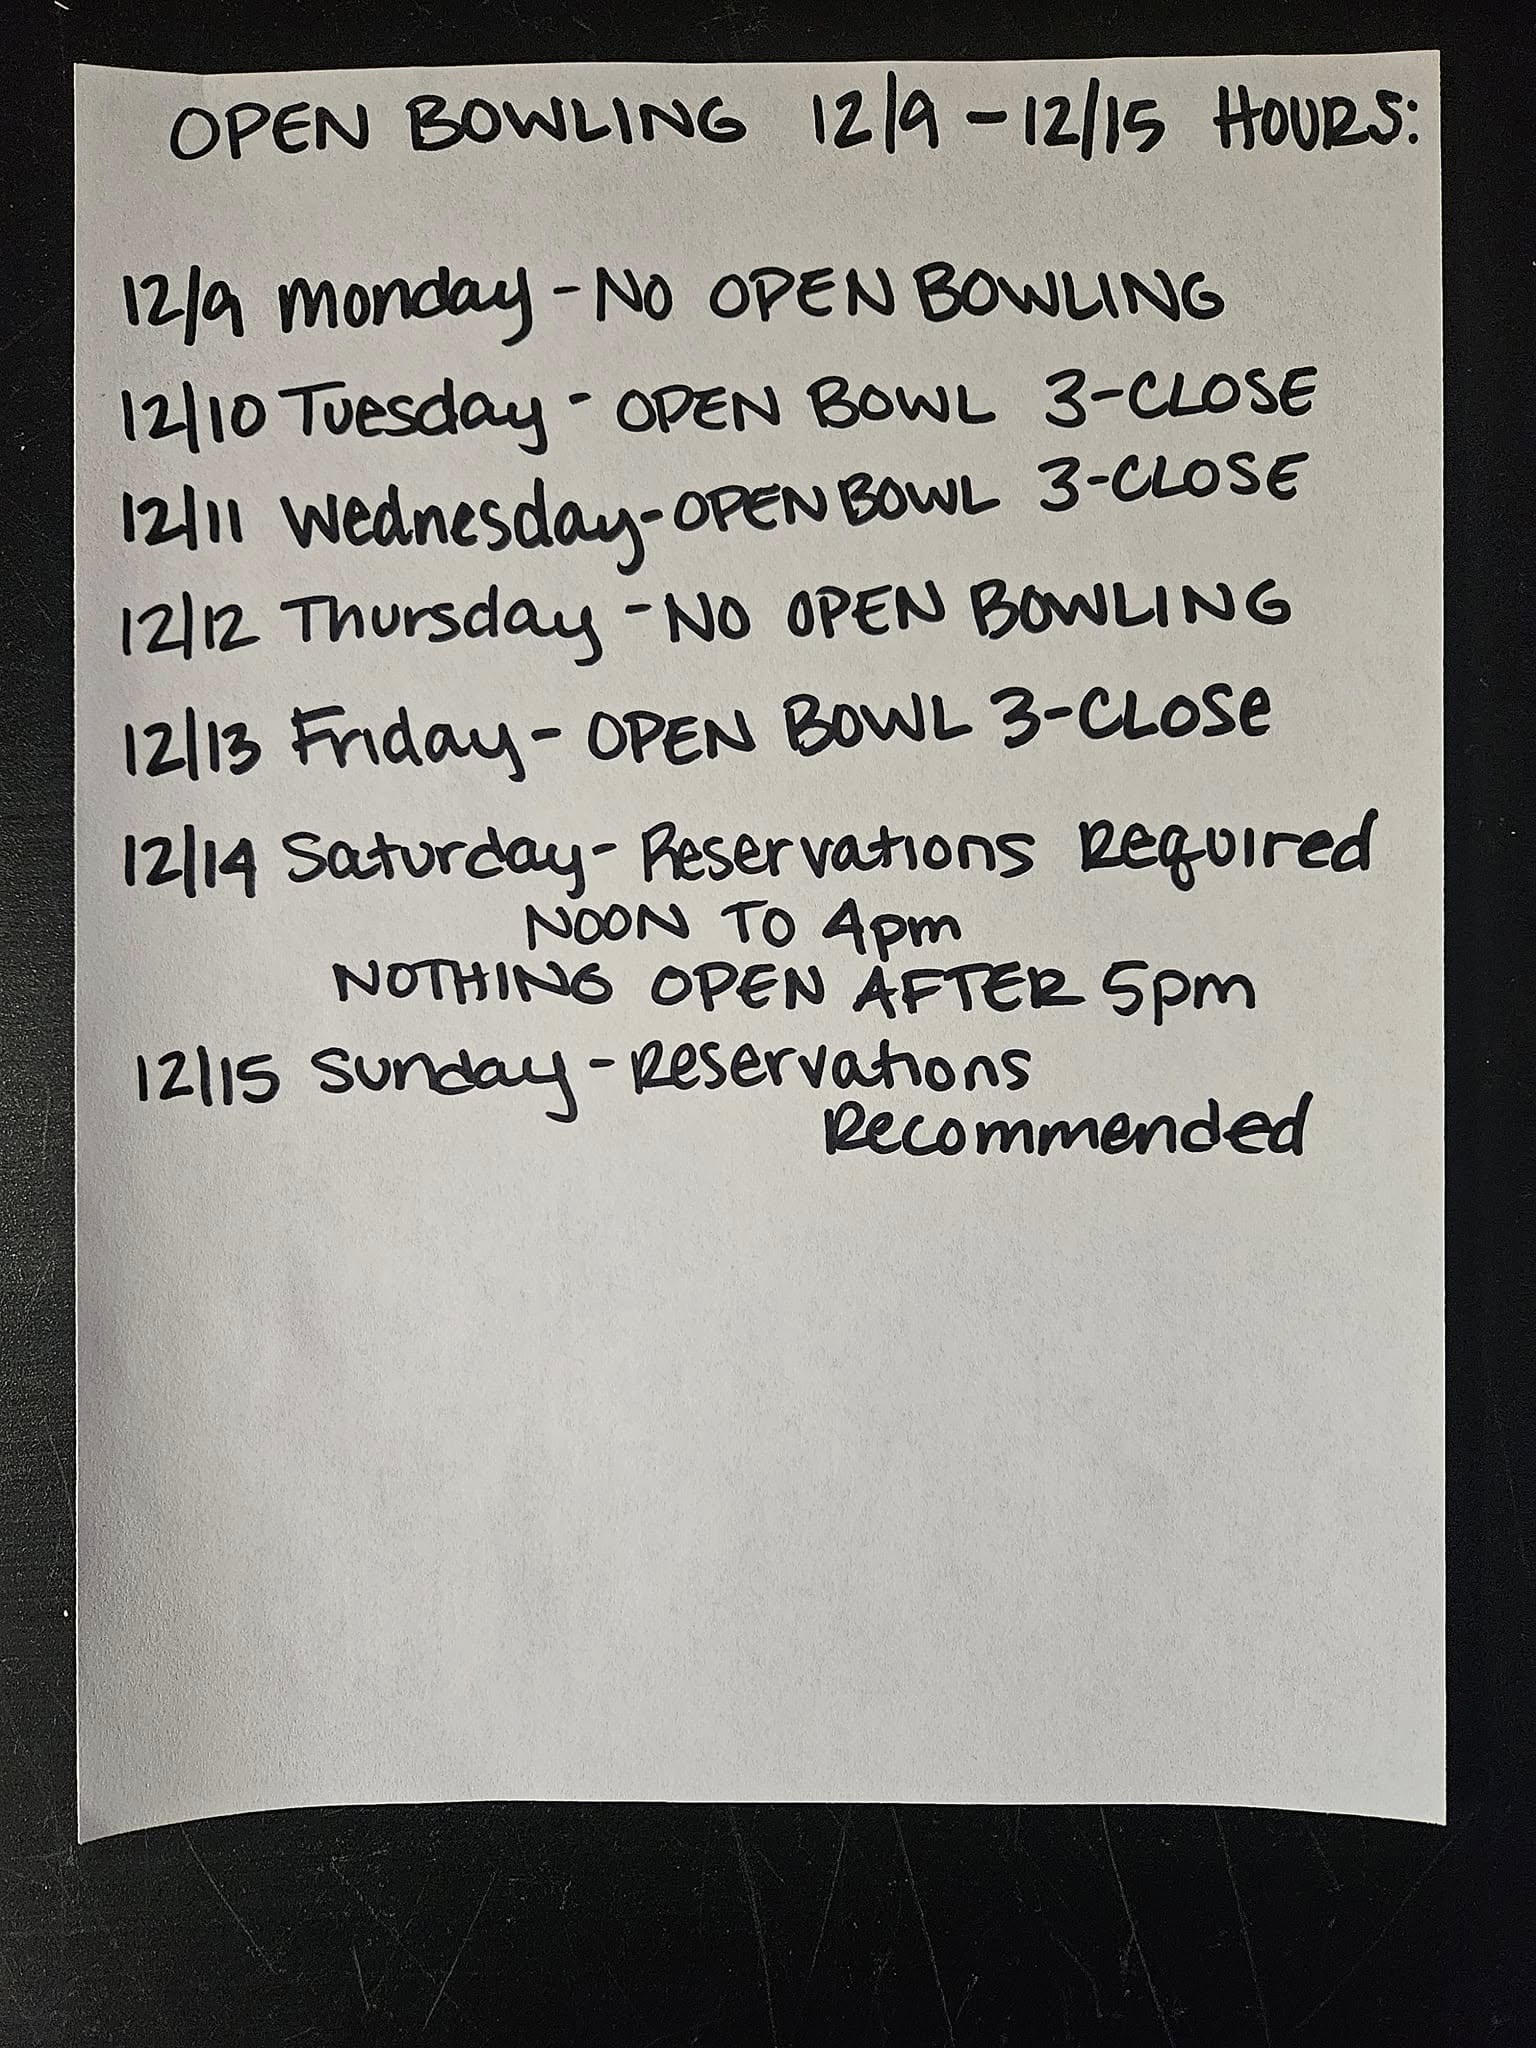 OPEN BOWLING 12/9 - 12/15 HOURS:
12/9 monday - NO OPEN BOWLING
12/10 Tuesday - OPEN BOWL 3-CLOSE
12/11 Wednesday - OPEN BOWL 3-CLOSE
12/12 Thursday - NO OPEN BOWLING
12/13 Friday - OPEN BOWL 3-CLOSe
12/14 Saturday - Reservations Required
NOON TO 4pm
NOTHING OPEN AFTER 5pm
12/15 Sunday - Reservations
Recommended